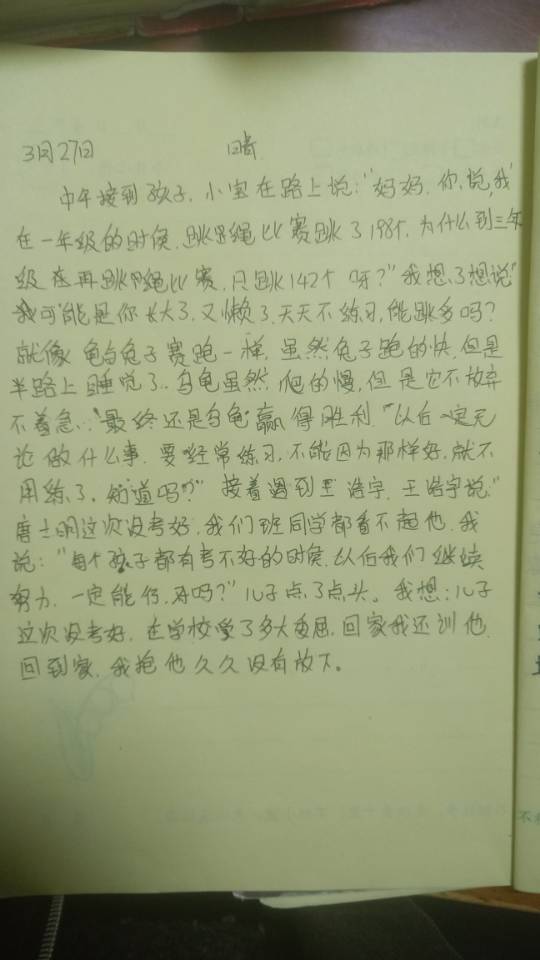 3月27日 晴
中午接到孩子，小宝在路上说："好妈，你说，我
在一年级的时候，跳绳比赛跳了198个，为什么到三年
级在再跳绳比赛，只跳142个呀？"我想了想说"
我可能是你长大了，又懒了，天天不练习，能跳多吗？
就像龟与兔子赛跑一样，虽然兔子跑的快，但是
半路上睡觉了..乌龟虽然，爬的慢，但是它不放弃
不着急..."最终还是乌龟赢得胜利，"以后一定无
论做什么事，要经常练习，不能因为那样好，就不
用练了，知道吗？"接着遇到王浩宇，王浩宇说："
唐士明这次没考好，我们班同学都看不起他，我
说："每个孩子都有考不好的时候，以后我们继续
努力，一定能行，对吗？"儿子点了点头。我想：儿子
这次没考好，在学校受了多大委屈，回家我还训他，
回到家，我抱他久久没有放下。